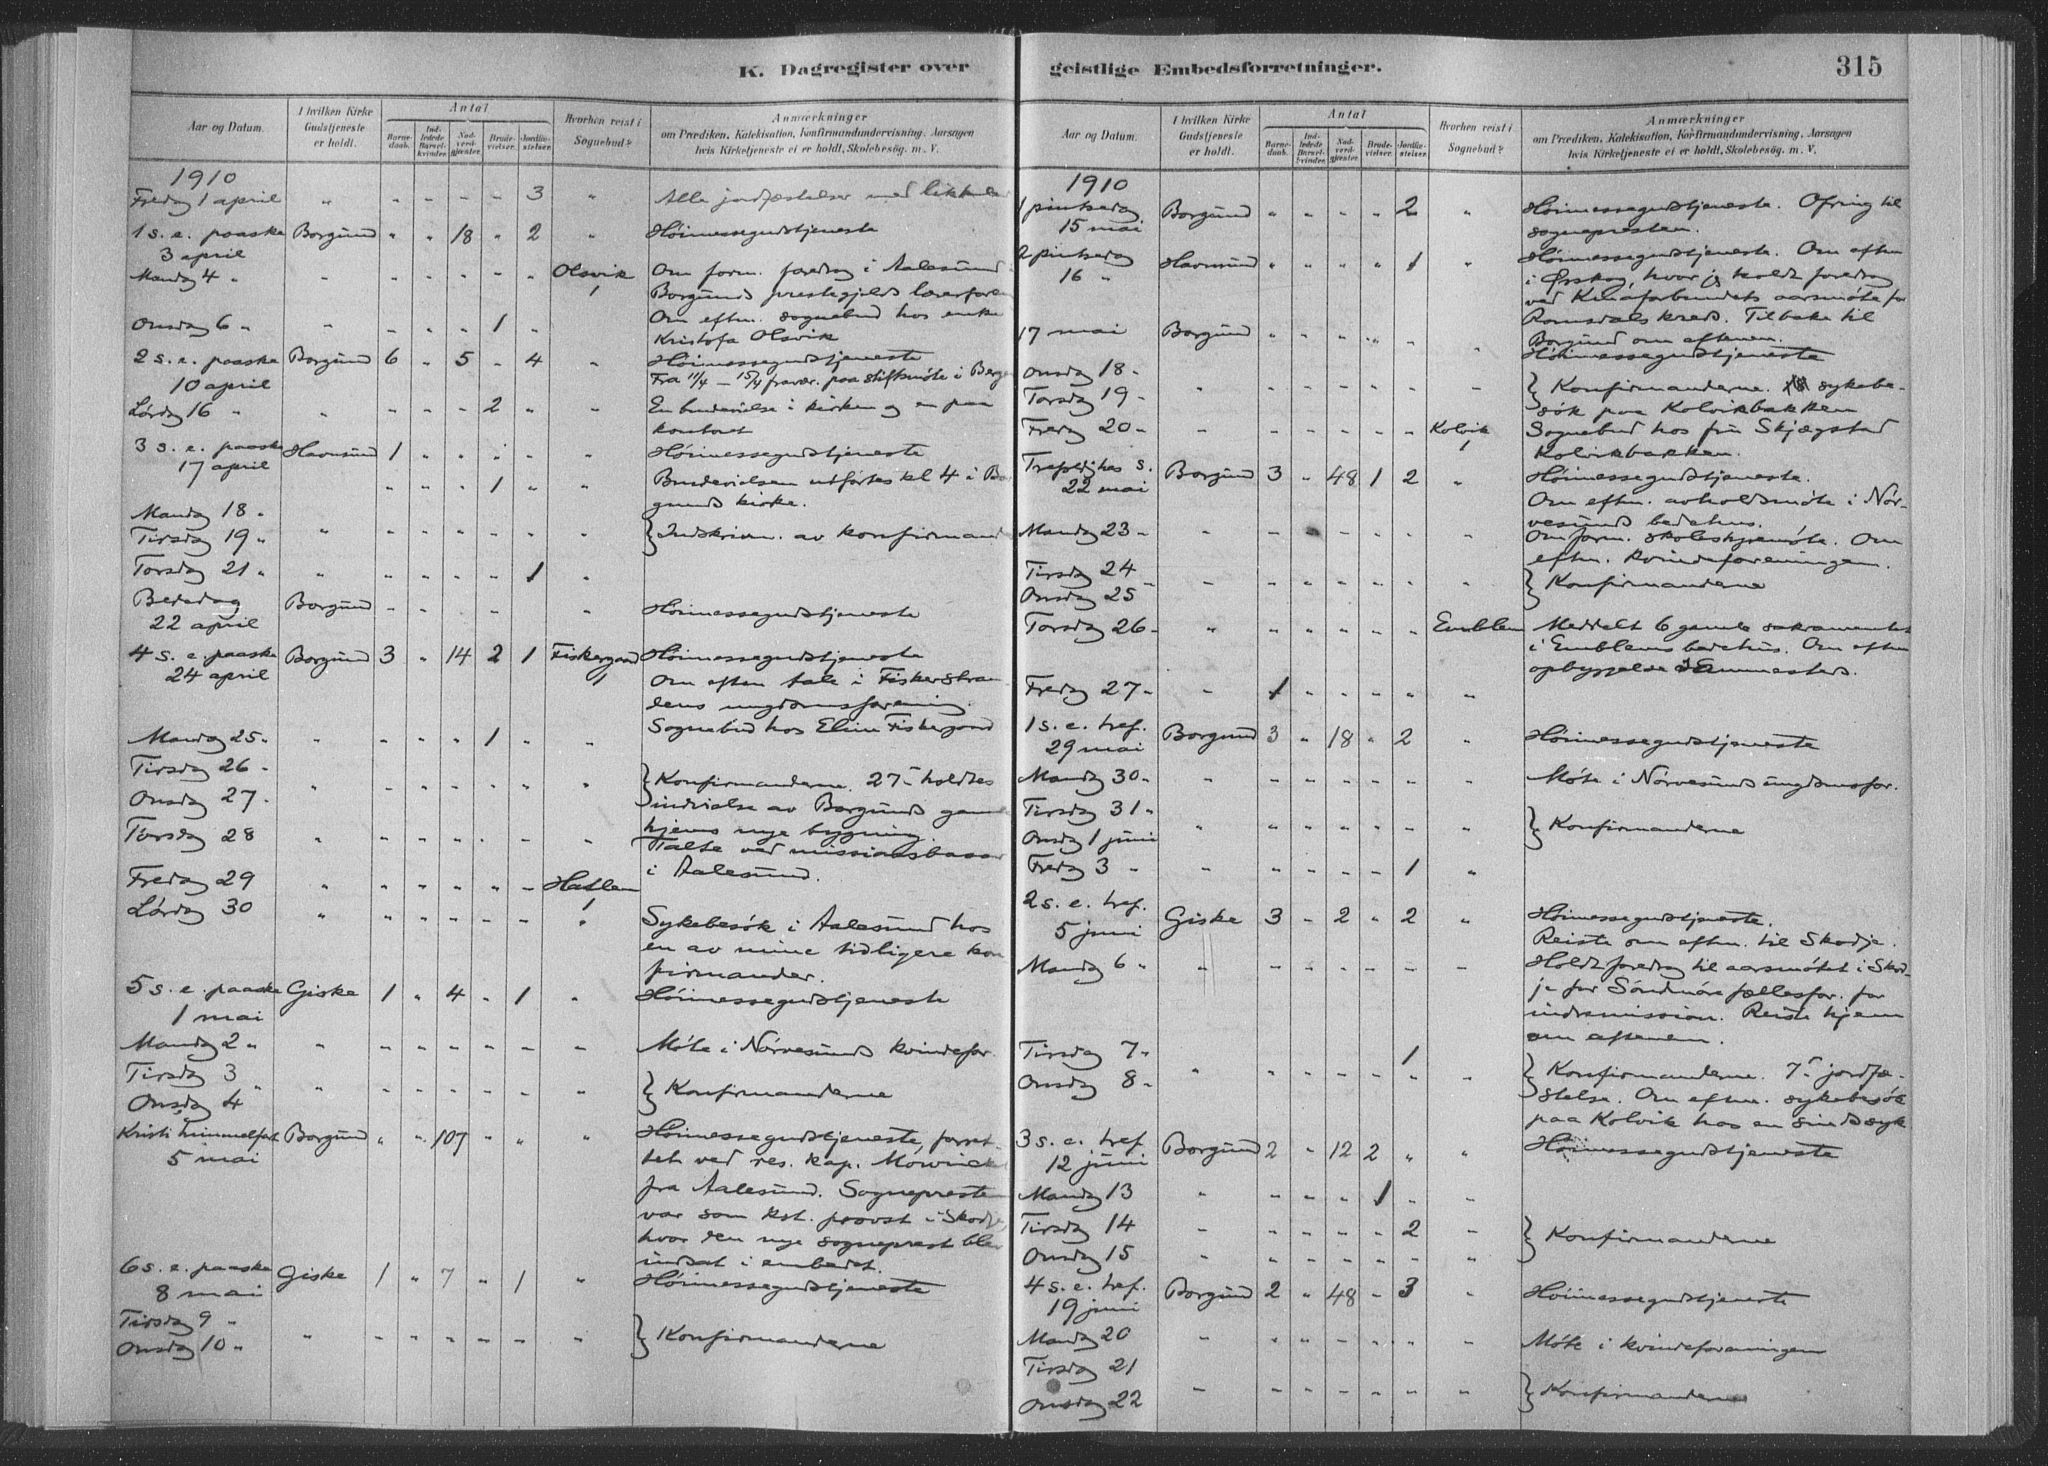 K. Dagregister over
Aar og Datum.
I hvilken Kirke Gudstjeneste er holdt.
Antal
Barnedaab.
Indledede Barselkvinder.
Nadverdgjester.
Brudevielser.
Jordfæstelser.
Hvorhen reist i Sognebud?
Anmærkninger
om Prædiken, Katekisation, Konfirmandundervisning, Aarsagen
hvis Kirketjeneste ei er holdt, Skolebesøg. m. V.
1910
Fredag 1 april " - - - - 3 " Alle jordfæstelser med
1 s. e. paaske Borgund " " 18 " 2 " Høimessegudstjeneste
3 april
Mandag 4 " " - - - - - Olsvik Om form. foredrag i Aalesund
1 Borgunds prestegjelds
Onsdag 6 " " - - - 1 - Om eftm. sognebud hos enke
Kristofa Olsvik
2 s. e. paaske Borgund 6 " 5 - 4 " Høimessegudstjeneste
10 april Fra 11/4 - 15/4 fravær. paa stiftsmøte i
Lørdag 16 " " - - - 2 " " En brudevielse i kirken og en paa
kontoret
3 s. e. paaske Havnsund 1 " " " " " Høimessegudstjeneste
17 april " " " 1 " " Brudevielsen utførtes kl 4 i
gunds kirke.
Mandag 18 "
Tirsdag 19 " " - - - - - " } Indskrivn. av
Torsdag 21 " " - - - - 1 "
Bededag Borgund - - " Høimessegudstjeneste
22 april
4 s. e. paaske Borgund 3 " 14 2 1 Fiskergaard Høimessegudstjeneste
24 april 1 Om eftm tale i
dens ungdomsforening.
Sognebud hos Eline Fiskergaard
Mandag 25 " " " " " 1 " "
Tirsdag 26 "
Onsdag 27 " " - - - - - " } Konfirmanderne. 27- holdtes
indvielse av Borgunds
hjems nye bygning.
Torsdag 28 " - - - - - " Talte ved
i Aalesund.
Fredag 29 " - - - - - Hatlen
1
Lørdag 30 " - - - - - " Sykebesøk i Aalesund hos
en av mine tidligere
firmander.
5 s. e. paaske Giske 1 " 4 " 1 " Høimessegudstjeneste
1 mai
Mandag 2 " " - - - - - " Møte i Nørvesunds kvindefor.
Tirsdag 3 "
Onsdag 4 " - - - - - " } Konfirmanderne
Kristi himmelfart Borgund " " 107 " " " Høimessegudstjeneste,
5 mai tet ved res. kap.
fra Aalesund. Sognepresten
var som kst. provst i
hvor den nye sogneprest blev
indsat i embedet.
6 s. e. paaske Giske 1 " 7 " 1 " Høimessegudstjeneste
8 mai
Tirsdag 9 "
Onsdag 10 " " - - - - - " } Konfirmanderne
geistlige Embedsforretninger.
315
Aar og Datum.
I hvilken Kirke Gudstjeneste er holdt.
Antal
Barnedaab.
Indledede Barselkvinder.
Nadverdgjester.
Brudevielser.
Jordfæstelser.
Hvorhen reist i Sognebud?
Anmærkninger
om Prædiken, Katekisation, Konfirmandundervisning, Aarsagen
hvis Kirketjeneste ei er holdt, Skolebesøg. m. V.
1910
1 pinsedag Borgund " " " " 2 " Høimessegudstjeneste. Ofring til
15 mai sognepresten.
2 pinsedag Havnsund " " " " 1 " Høimessegudstjeneste. Om eftm
16 " i Ørskog, hvor jeg holdt foredrag
ved Kinaforbundets aarsmøte for
Romsdals kreds. Tilbake til
Borgund om aftenen.
17 mai Borgund " " " " " " Høimessegudstjeneste
Onsdag 18 "
Torsdag 19 " " - - - - - " } Konfirmanderne. sykebe-
søk paa Kolvikbakken
Fredag 20 " " - - - - - Kolvik Sognebud hos fru Skjægstad
1 Kolvikbakken.
Trefoldighets s. Borgund 3 " 48 1 2 " Høimessegudstjeneste.
22 mai Om eftm. avholdsmøte i Nør-
vesunds bedehus.
Mandag 23 " " - - - - - " Om form. skolestyremøte. Om
eftm. kvindeforeningen.
Tirsdag 24 "
Onsdag 25 " - - - - - " } Konfirmanderne
Torsdag 26 " " - - - - - Emblem Meddelt 6 gamle sakramentet
i Emblems bedehus. Om eftm
opbyggelse sammesteds.
Fredag 27 " " 1 - - - - "
1 s. e. tref. Borgund 3 " 18 " 2 " Høimessegudstjeneste
29 mai
Mandag 30 " " - - - - - " Møte i Nørvesunds ungdomsfor.
Tirsdag 31 "
Onsdag 1 juni " - - - - - " } Konfirmanderne
Fredag 3 " " - - - - 1 "
2 s. e. tref. Giske 3 - 2 " 2 " Høimessegudstjeneste.
5 juni Reiste om eftm. til Skodje.
Mandag 6 " " - - - - - - Holdt foredrag til aarsmøtet i Skod-
je for Søndmøre fællesfor. for
indremission. Reiste hjem
om aftenen.
Tirsdag 7 " 1
Onsdag 8 " " - - - - - " } Konfirmanderne. 7- jordfæ-
stelse. Om eftm. sykebesøk
paa Kolvik hos en sindssyk
3 s. e. tref. Borgund 2 " 12 2 " " Høimessegudstjeneste
12 juni
Mandag 13 " - - - 1 - "
Tirsdag 14 " - - - - 2 "
Onsdag 15 " - - - - - " } Konfirmanderne
4 s. e. tref. Borgund 2 " 48 " 3 " Høimessegudstjeneste
19 juni
Mandag 20 " " - - - - " Møte i kvindeforeningen
Tirsdag 21
Onsdag 22 - - - - - - " } Konfirmanderne